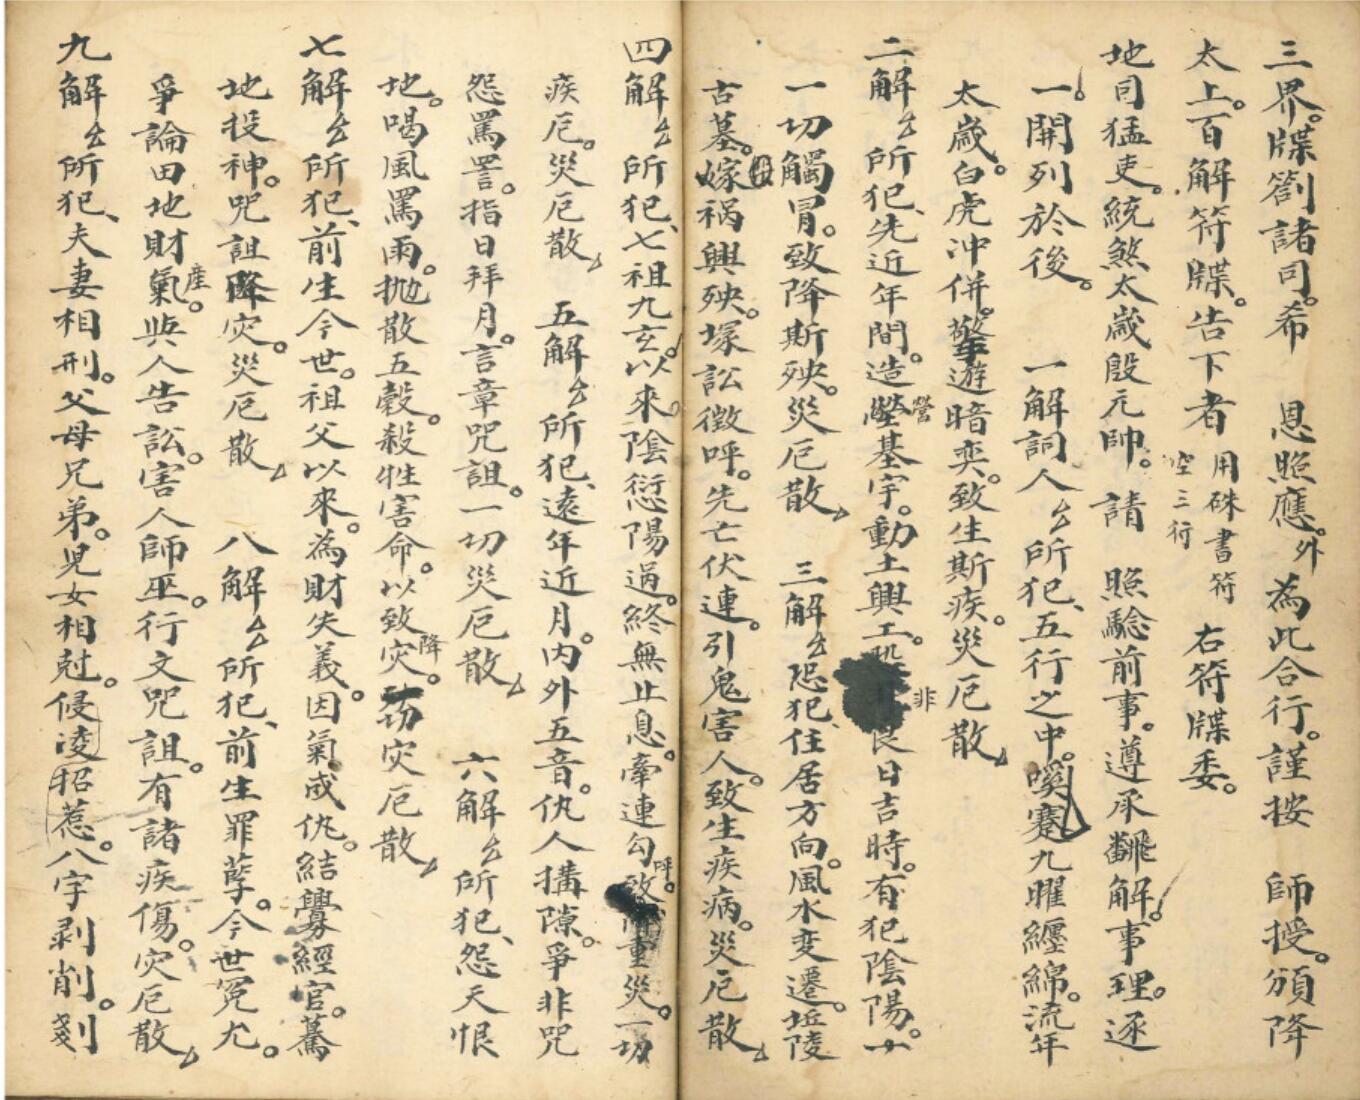 三界。牒劄諸司。希　恩照應。外為此合行。謹按　師授。頒降
太上。百解符牒。告下者　用硃書符　空三行　右符牒委。
地司猛吏。統煞太歲殷元帥。請　照驗前事。遵承翻解。事理。逐
一。開列於後。　一解詞人厶所犯、五行之中。蹇九曜纏綿。流年
太歲。白虎冲併。遊暗奕。致生斯疾。災厄散
二解厶所犯、先近年間。造營基宇。動土興工。非良日吉時。有犯陰陽。
一切觸冒。致降斯殃。災厄散　三解厶恐犯、住居方向。風水变遷。坵陵
古墓。嫁祸興殃。塚訟徵呼。先亡伏連。引鬼害人。致生疾病。災厄散
四解厶所犯、七祖九玄。以來。陰愆陽過。終無止息。牽連勾呼。致重災。一切
疾厄。災厄散　五解厶所犯、遠年近月。内外五音。仇人搆隙。爭非咒
怨罵詈。指日拜月。言章咒詛。一切災厄散　六解厶所犯、怨天恨
地。喝風罵雨。拋散五穀。殺牲害命。以致降灾。灾厄散
七解厶所犯、前生今世。祖父以來。為財失義。因氣成仇。結釁經官。驀
地投神。咒詛降灾。災厄散　八解厶所犯、前生罪孽。今世冤尤。
爭論田地財產。與人告訟。害人師巫。行文咒詛。有諸疾傷。灾厄散
九解厶所犯、夫妻相刑。父母兄弟。児女相尅。侵凌招惹。八字剥削。刬